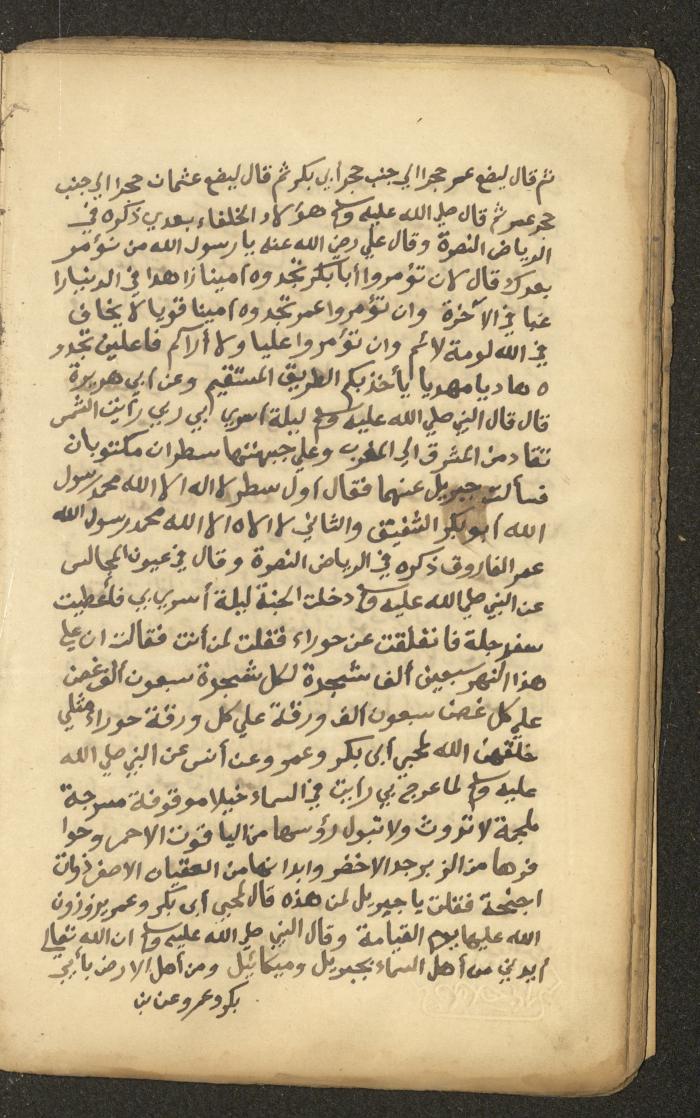 ثم قال ليضع عمر حجرا الي جنب حجر أبي بكر ثم قال ليضع عثمان حجرا الي جنب
حجر عمر ثم قال صلي الله عليه وسلم هؤلاء الخلفاء بعدي ذكره في
الرياض النضرة وقال علي رضي الله عنه يا رسول الله من نؤمر
بعدك قال ان تؤمروا أبا بكر تجدوه أمينا زاهدا في الدنيا را
غبا في الآخرة وان تؤمروا عمر تجدوه أمينا قويا لا يخاف
في الله لومة لائم وان تؤمروا عليا ولا أراكم فاعلين تجدو
ه هاديا مهديا يأخذ بكم الطريق المستقيم وعن أبي هريرة
قال قال النبي صلي الله عليه وسلم ليلة أسري بي ربي رأيت الشمس
تقاد من المشرق الي المغرب وعلي جبهتها سطران مكتوبان
فسألت جبريل عنهما فقال أول سطر لا اله الا الله محمد رسول
الله أبو بكر الشفيق والثاني لا الاه الا الله محمد رسول الله
عمر الفاروق ذكره في الرياض النضرة وقال في عيون المجالس
عن النبي صلي الله عليه وسلم دخلت الجنة ليلة أسري بي فأعطيت
سفرجلة فانفلقت عن حوراء فقلت لمن أنت فقالت ان علي
هذا النهر سبعين ألف شجرة لكل شجرة سبعون ألف غصن
علي كل غصن سبعون ألف ورقة علي كل ورقة حوراء مثلي
خلقهن الله لمحبي أبي بكر وعمر وعن أنس عن النبي صلي الله
عليه وسلم لما عرج بي رايت في السماء خيلا موقوفة مسرجة
ملجمة لا تروث ولا تبول رؤسها من الياقوت الاحمر وحوا
فرها من الزبرجد الاخضر وابدانها من العقيان الاصفر ذوات
اجنحة فقلت يا جبريل لمن هذه قال لمحبي أبي بكر وعمر يزورون
الله عليها يوم القيامة وقال النبي صلي الله عليه وسلم ان الله تعالي
أيدني من أهل السماء بجبريل وميكائيل ومن أهل الارض بأبي
بكر وعمر وعن بن